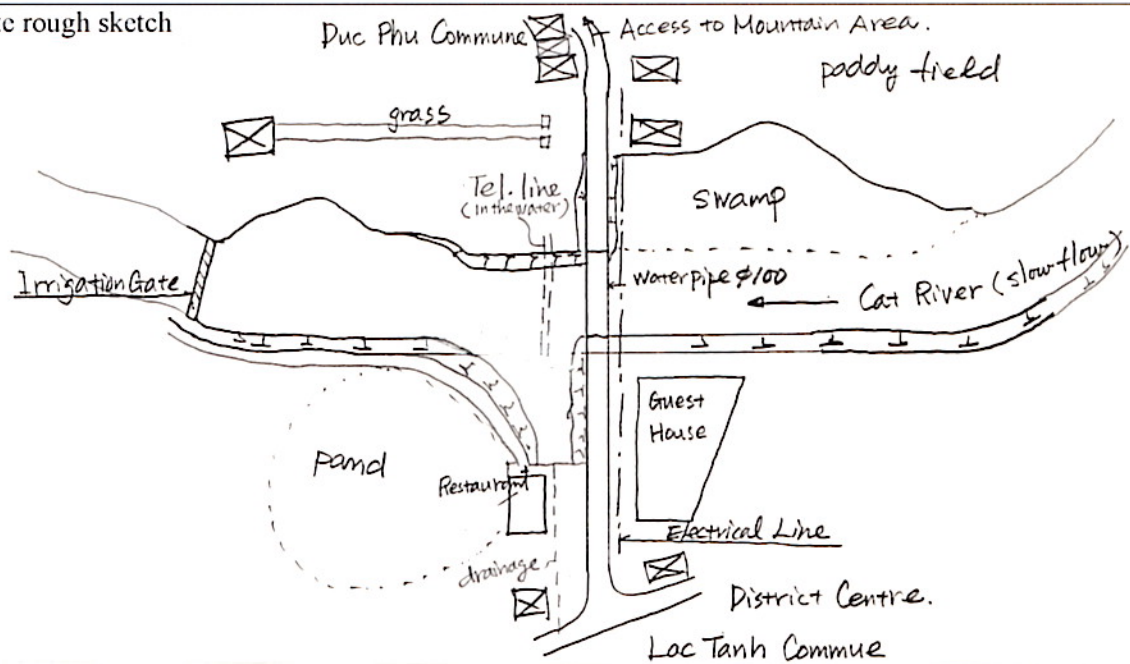 rough sketch
Duc Phu Commune
Access to Mountain Area.
paddy field
grass
Tel. line
(in the water)
swamp
Irrigation Gate
waterpipe φ100
Cat River (slow flow)
Guest
House
pand
Restaurant
Electrical Line
drainage
District Centre.
Lac Tanh Commue